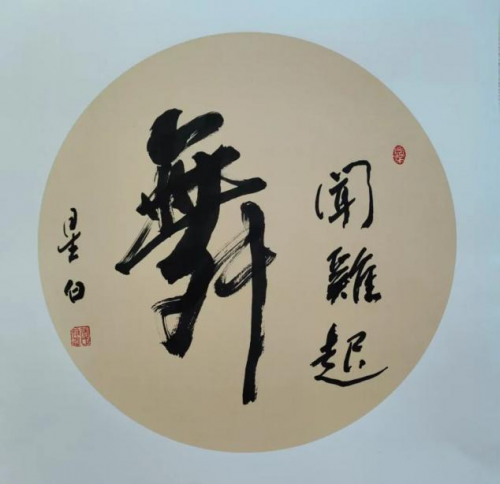 聞雞起
舞
星伯